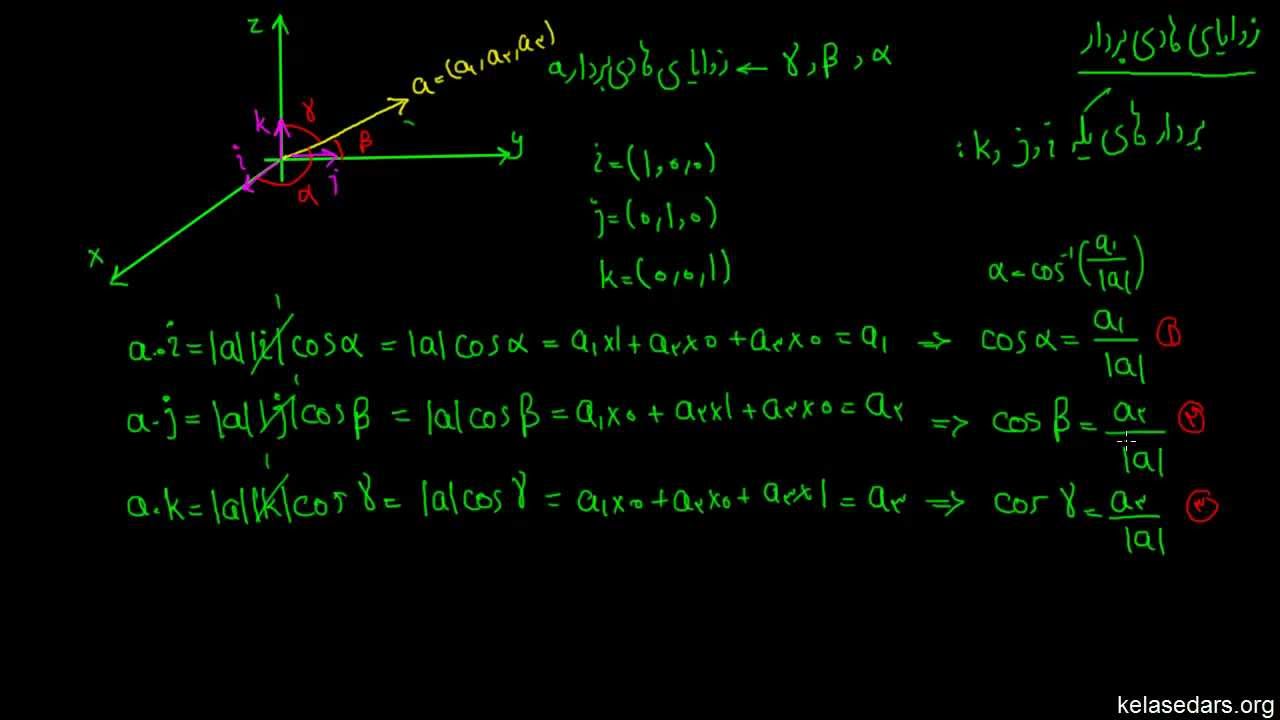 زوایای هادی بردار
z
a=(a₁,a₂,a₃)
α , β , γ ← زوایای هادی بردار a
k γ
β
y
i
j
α
x
بردارهای یکه k, j, i :
i=(1,0,0)
j=(0,1,0)
k=(0,0,1)
α=cos⁻¹(a₁/|a|)
a.i=|a||i|¹cosα=|a|cosα=a₁×1+a₂×0+a₃×0=a₁ ⇒ cosα=a₁/|a| ①
a.j=|a||j|¹cosβ=|a|cosβ=a₁×0+a₂×1+a₃×0=a₂ ⇒ cosβ=a₂/|a| ②
a.k=|a||k|¹cosγ=|a|cosγ=a₁×0+a₂×0+a₃×1=a₃ ⇒ cosγ=a₃/|a| ③
kelasedars.org